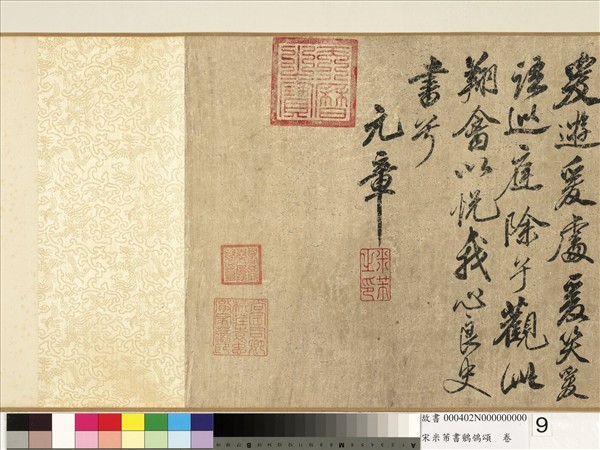 爰遊爰處爰笑爰
語巡庭除兮觀此
翔禽以悅我心良史
書兮
元章
天曆之寶
米芾之印
故書 000402N000000000
宋米芾書鶺鴒頌 卷
9